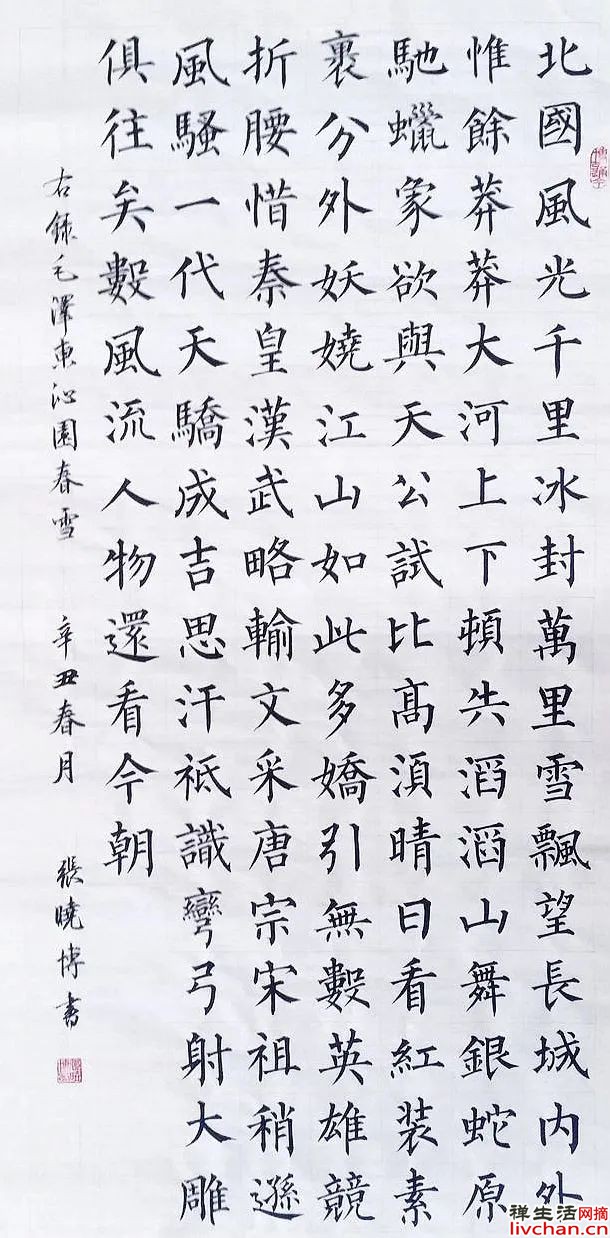 北國風光千里冰封萬里雪飄望長城内外
惟餘莽莽大河上下頓失滔滔山舞銀蛇原
馳蠟象欲與天公試比高須晴日看紅装素
裹分外妖嬈江山如此多嬌引無數英雄競
折腰惜秦皇漢武略輸文采唐宗宋祖稍遜
風騷一代天驕成吉思汗祗識彎弓射大雕
俱往矣數風流人物還看今朝
右錄毛澤東沁園春雪 辛丑春月 張曉博書
禅生活网摘
livchan.cn